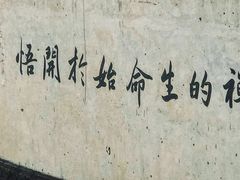 的生命始於開悟